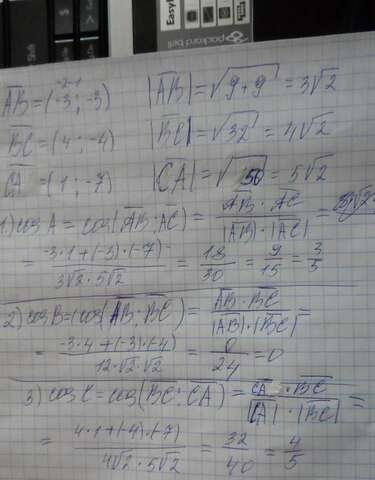 EasyN
packard bell
-2-1
AB̅ = (-3; -3) |AB̅| = √9+9 = 3√2
BC̅ = (4; -4) |BC̅| = √32 = 4√2
CA̅ = (1; -7) |CA̅| = √50 = 5√2
1) cos A = cos(AB̅; AC̅) = AB̅ · AC̅ / |AB̅| · |AC̅| =
= -3·1+(-3)·(-7) / 3√2 · 5√2 = 18/30 = 9/15 = 3/5
2) cos B = cos(AB̅; BC̅) = AB̅ · BC̅ / |AB̅| · |BC̅| =
= -3·4+(-3)·(-4) / 12·√2·√2 = 0/24 = 0
3) cos C = cos(BC̅; CA̅) = CA̅ · BC̅ / |CA̅| · |BC̅| =
= 4·1+(-4)·(-7) / 4√2 · 5√2 = 32/40 = 4/5